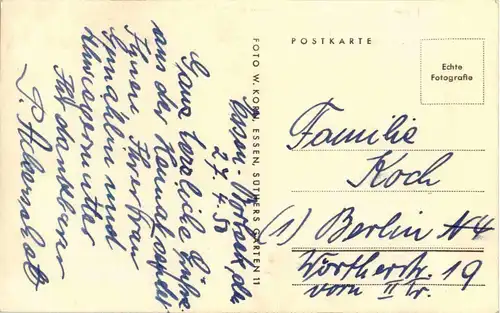 Essen-Borbeck, den
27.4.50
Ganz herzliche Grüße
aus der Heimat
Ihnen, Ihrer Frau
Gemahlin und
Schwiegermutter
Ihr dankbarer
P.
FOTO W. KORN, ESSEN, SÜTHERS GARTEN 11
POSTKARTE
Echte
Fotografie
Familie
Koch
(1) Berlin N4
Wörtherstr. 19
vorn II Tr.